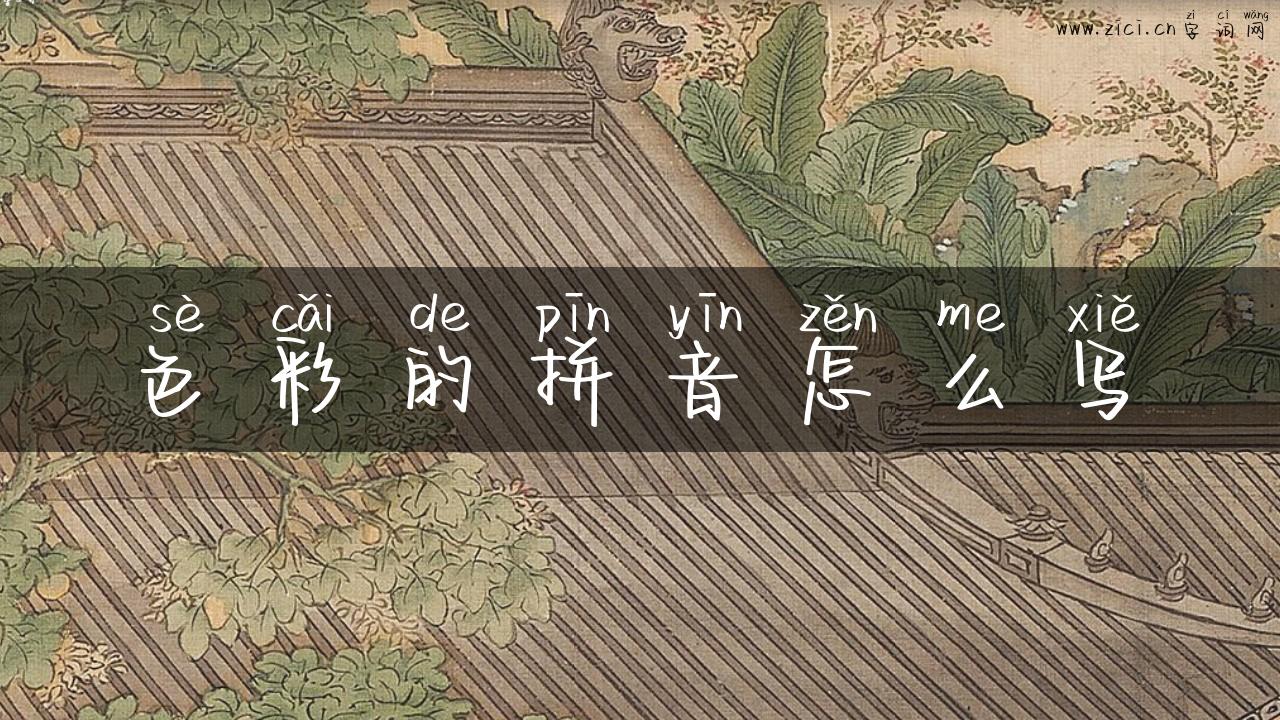 zì cí wǎng
www.zici.cn 字词网
sè cǎi de pīn yīn zěn me xiě
色彩的拼音怎么写